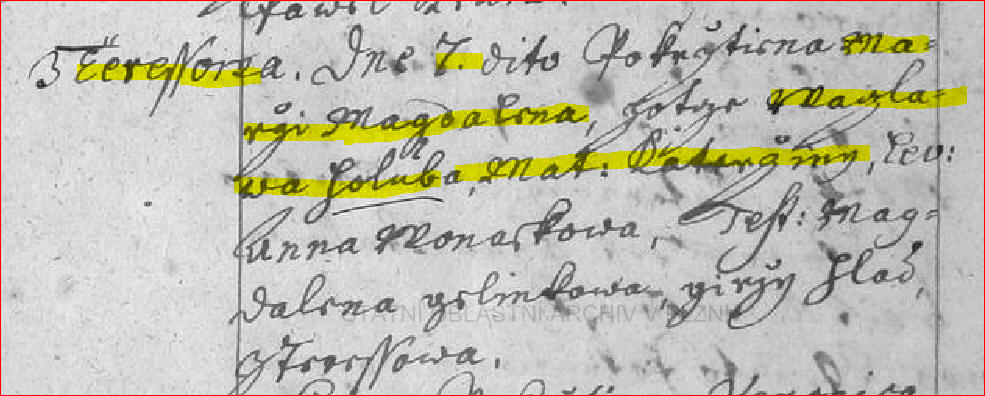 Pawel
z Teressowa. Dne 7. dito Pokržticna Ma=
rgi Magdalena, Hotcze Waczla=
wa Holuba, Mat: Kateržiny, Lev:
Anna Wonaskowa, Test: Mag=
dalena gelinkowa, girzy Hlad,
z Teressowa.
STÁTNÍ OBLASTNÍ ARCHIV V PLZNI